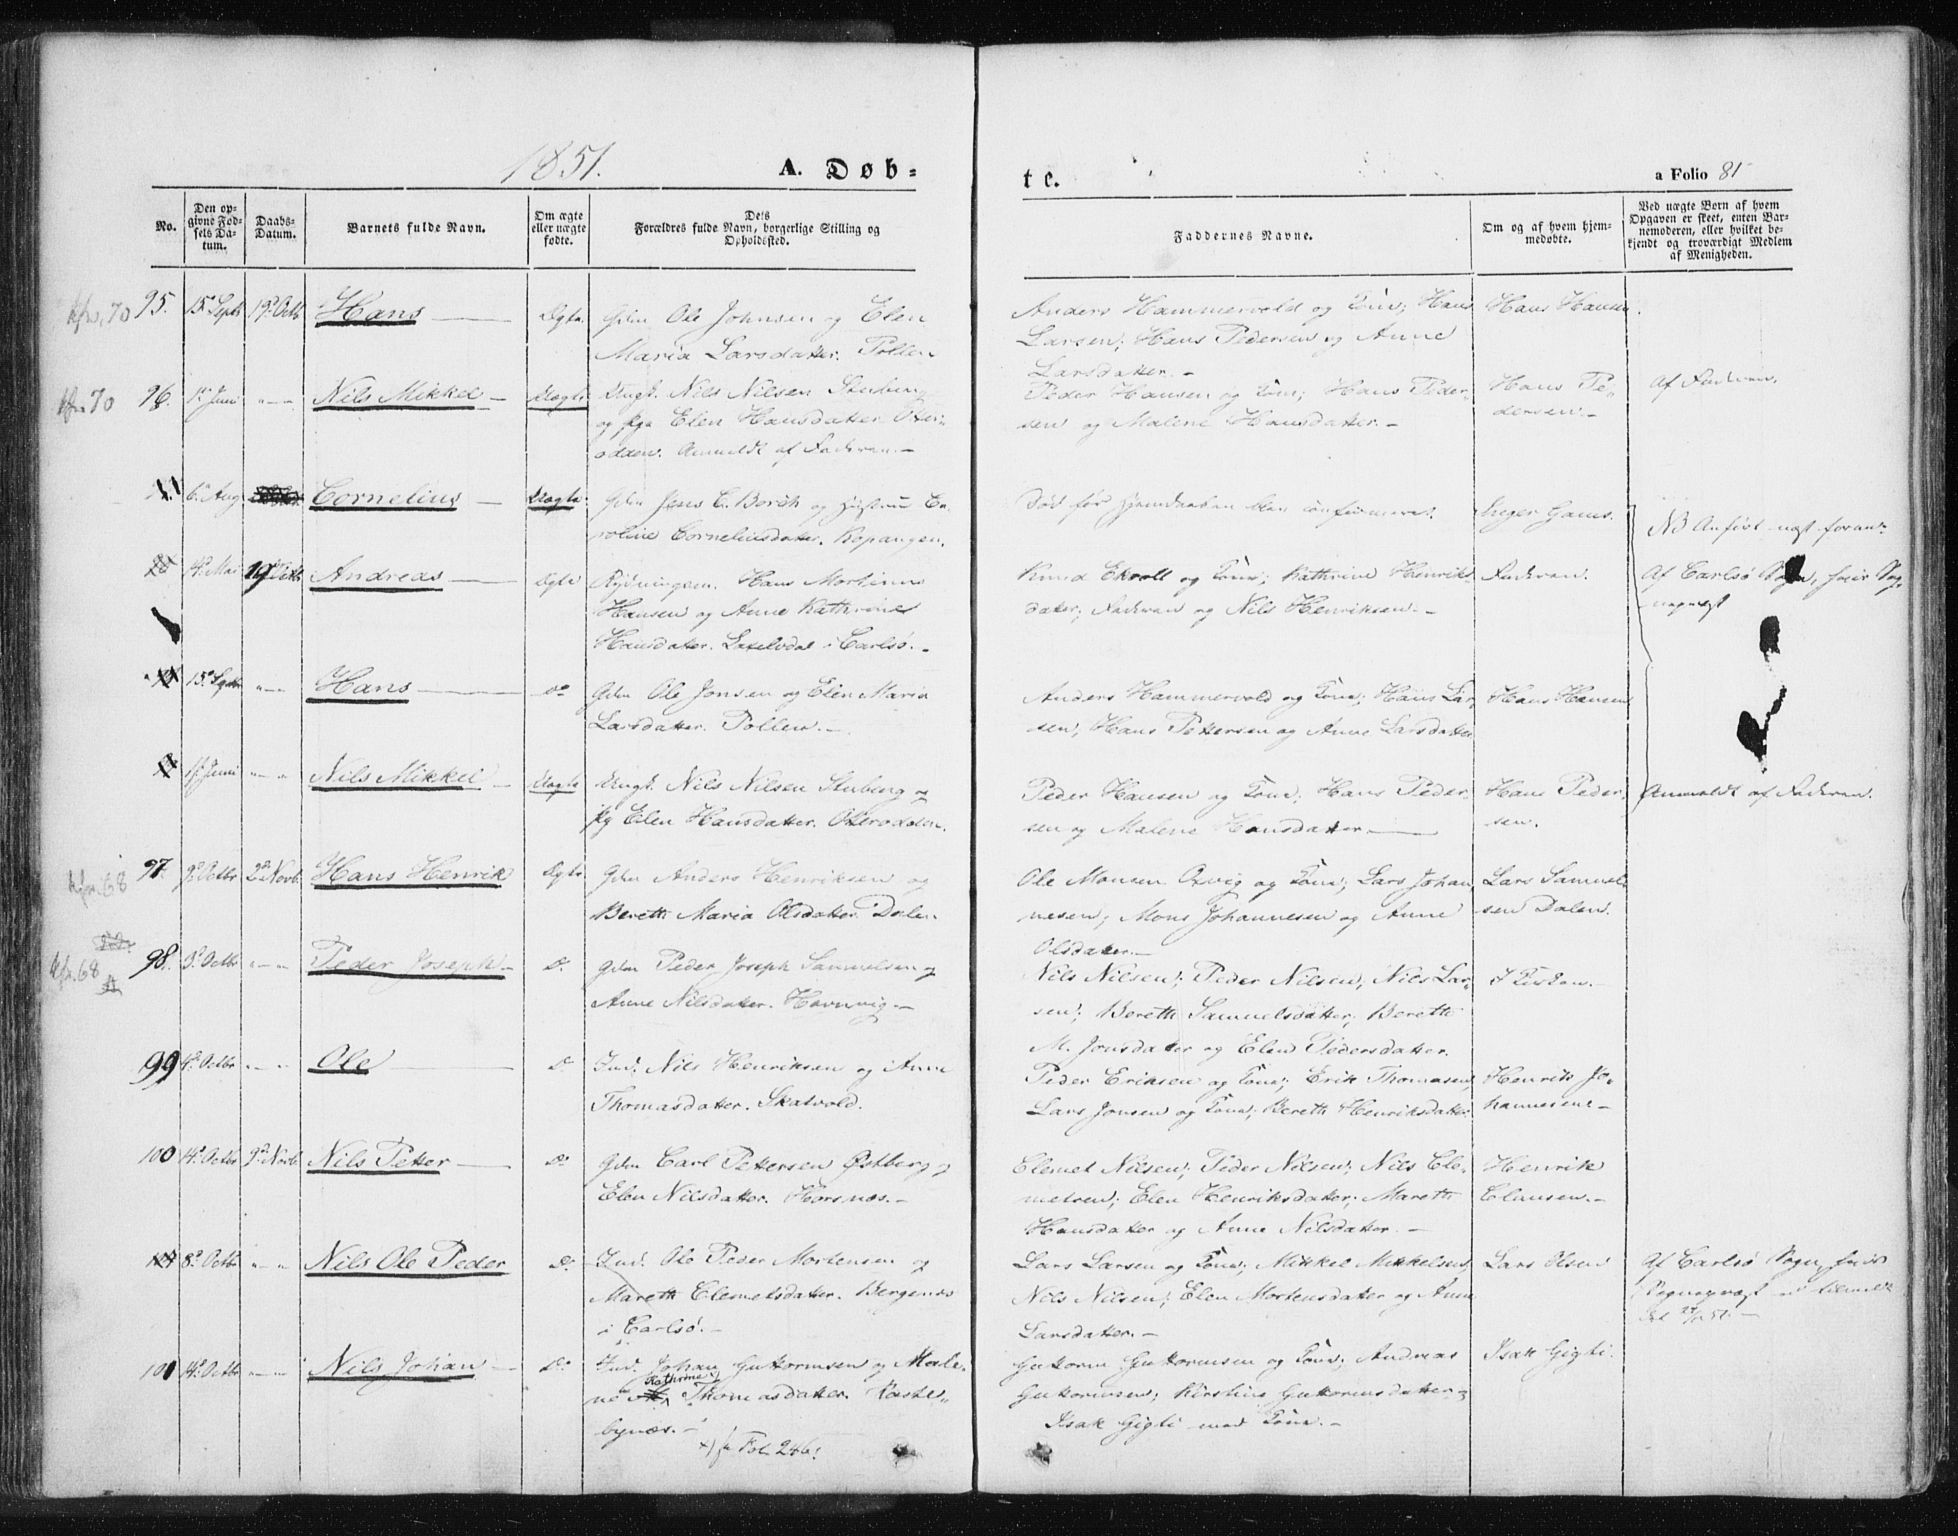 1851.
A. Døb=
te.
a Folio 81
No.
Den op=
givne Fød=
sels Da=
tum.
Daabs=
Datum.
Barnets fulde Navn.
Om ægte
eller uægte
fødte.
Dets
Forældres fulde Navn, borgerlige Stilling og
Opholdssted.
Faddernes Navne.
Om og af hvem hjem=
medøbte.
Ved uægte Børn af hvem
Opgaven er skeet, enten Bar=
nemoderen, eller hvilket be=
kjendt og troværdigt Medlem
af Menigheden.
kfr. 70 95. 15 Sept 19 Octb Hans Ægte Gdm Ole Johnsen og Elen
Maria Larsdatter. Pollen
Anders Hammervold og Kone; Hans
Larsen; Hans Pedersen og Anne
Larsdatter.-
Hans Hansen
kfr 70 96. 1 Juni " - " Nils Mikkel Uægte Ungk. Nils Nilsen Stuberg
og pge Elen Hansdatter Oter=
odden. Anmeldt af Faderen.-
Peder Hansen og Kone; Hans Peder=
sen og Malene Hansdatter.-
Hans Pe=
dersen.-
Af Faderen.
6 Aug Cornelius Uægte. Gdm Jens C. Borch og Hustrue Ca=
roline Corneliusdatter. Kopangen.
Død før Hjemdaaben blev confirmeret.
Inger Gams.
NB Anført næst foran
4 Mai 19 Octb Andreas Ægte Rydningsm. Hans Mortinus
Hansen og Anne Kathrine
Hansdatter. Lakselvdal i Carlsø.-
Knud Ekroll og Kone; Kathrine Henriks=
datter; Faderen og Nils Henriksen.-
Faderen.
Af Carlsø Sogn,
15 Septr " - " Hans Do Gdm Ole Jonsen og Elen Maria
Larsdatter. Pollen.-
Anders Hammervold og Kone; Hans Lar=
sen; Hans Pettersen og Anne Larsdatter
Hans Hansen
1 Juni " - " Nils Mikkel Uægte Ungk. Nils Nilsen Stuberg og
pg Elen Hansdatter. Oterodden.
Peder Hansen og Kone; Hans Peder=
sen og Malene Hansdatter
Hans Peder=
sen.
Anmeldt af Faderen.
kfr. 68 97. 9 Octbr 2 Novb. Hans Henrik Ægte Gdm Anders Henriksen og
Bereth Maria Olsdatter. Dalen
Ole Monsen Oxvig og Kone; Lars Johan=
nesen; Mons Johannesen og Anne
Olsdatter.-
Lars Samuel=
sen Dalen.
kfr. 68 98. 3 Octb " - " Peder Joseph Do Gdm Peder Joseph Samuelsen og
Anne Nilsdatter. Havnvig.-
Nils Nilsen; Peder Nilsen; Nils Lar=
sen; Bereth Samuelsdatter; Bereth
M. Jonsdatter og Elen Pedersdatter.
I Kirken.-
99 4 Octbr " - " Ole Do Ind. Nils Henriksen og Anne
Thomasdatter. Skatvold.
Peder Eriksen og Kone; Erik Thomasen,
Lars Jonsen og Kone; Bereth Henriksdatter
Henrik Jo=
hannesen.-
100 14 Octbr 9 Novb. Nils Petter Do Gdm Carl Pettersen Østberg og
Elen Nilsdatter. Horsnæs.-
Clemet Nilsen; Peder Nilsen; Nils Cle=
metsen; Elen Henriksdatter; Mareth
Hansdatter og Anne Nilsdatter.-
Henrik
Clausen.-
8 Octbr " - " Nils Ole Peder Do Ind. Ole Peder Mortensen og
Mareth Clemetsdatter. Bergenæs
i Carlsø.-
Lars Larsen og Kone; Mikkel Mikkelsen;
Nils Nilsen; Elen Mortensdatter og Anne
Larsdatter.-
Lars Olsen
Af Carlsø Sogn,
101 14 Octbr " - " Nils Johan Do Ind. Johan Guttormsen og Male=
ne Kathrine x) Thomasdatter. Karste=
bynæs.-
x) fr Fol 246.
Guttorm Guttormsen og Kone; Andreas
Guttormsen; Kirstine Guttormsdatter;
Isak Gigti med Kone.-
Isak Gigti.